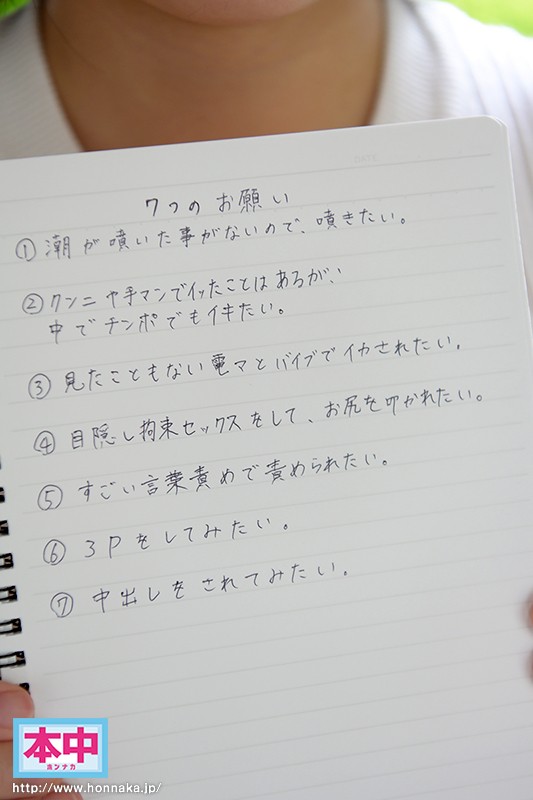 7つのお願い
① 潮が噴いた事がないので、噴きたい。
② クンニや手マンでイッたことはあるが、
中でチンポでもイキたい。
③ 見たこともない電マとバイブでイカされたい。
④ 目隠し拘束セックスをして、お尻を叩かれたい。
⑤ すごい言葉責めで責められたい。
⑥ 3Pをしてみたい。
⑦ 中出しをされてみたい。
本中
ホンナカ
http://www.honnaka.jp/